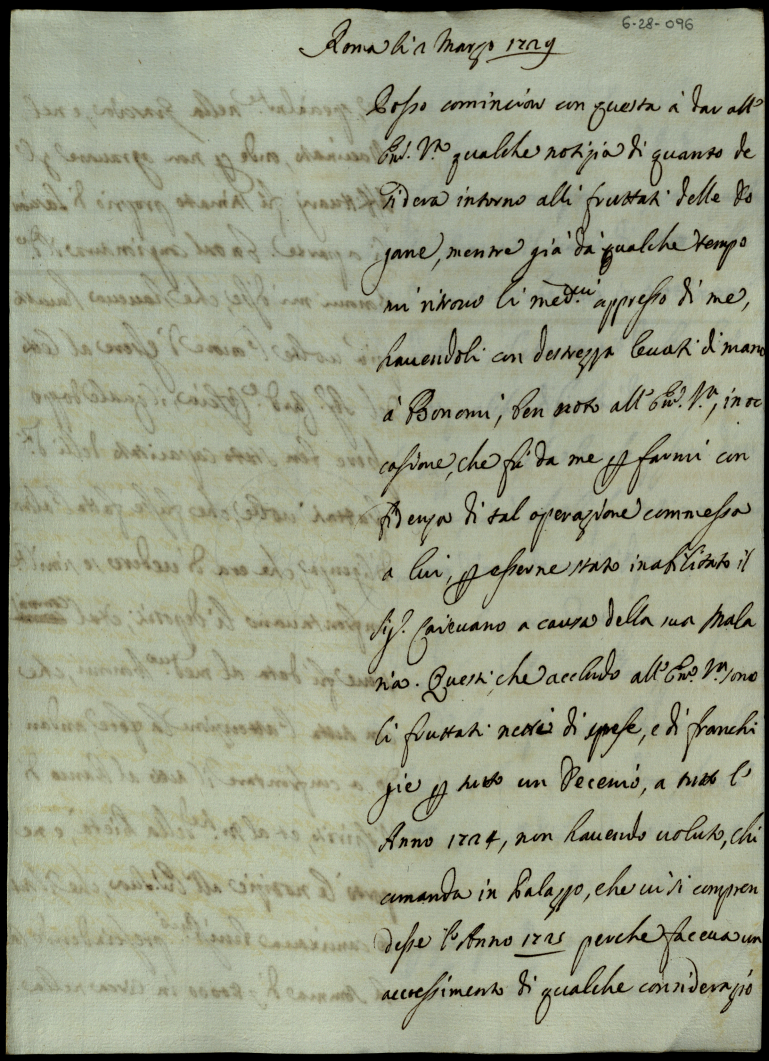 6-28-096
Roma li 2 Marzo 1729
Posso cominciar con questa à dar all'
Em. Vra qualche notizia di quanto de
sidera intorno alli fruttati delle Do
gane, mentre già dà qualche tempo
mi ritrovo li med.mi appresso di me,
havendoli con destrezza levati di mano
à Bonomi, ben noto all' Em. V.ra, in oc
casione, che fù da me p farmi con
fidenza di tal operazione commessa
a lui, p esserne stato inabilitato il
Sig.r a causa della sua Mala
tia. Questi, che accludo all' Em. V.ra sono
li fruttati netti di spese, e di franchi
gie p tutto un Decenio, a tutto l'
Anno 1724, non havendo voluto, chi
comanda in Palazzo, che vi si compren
desse l'Anno 1725 perche faceva un
accressimento di qualche considerazio